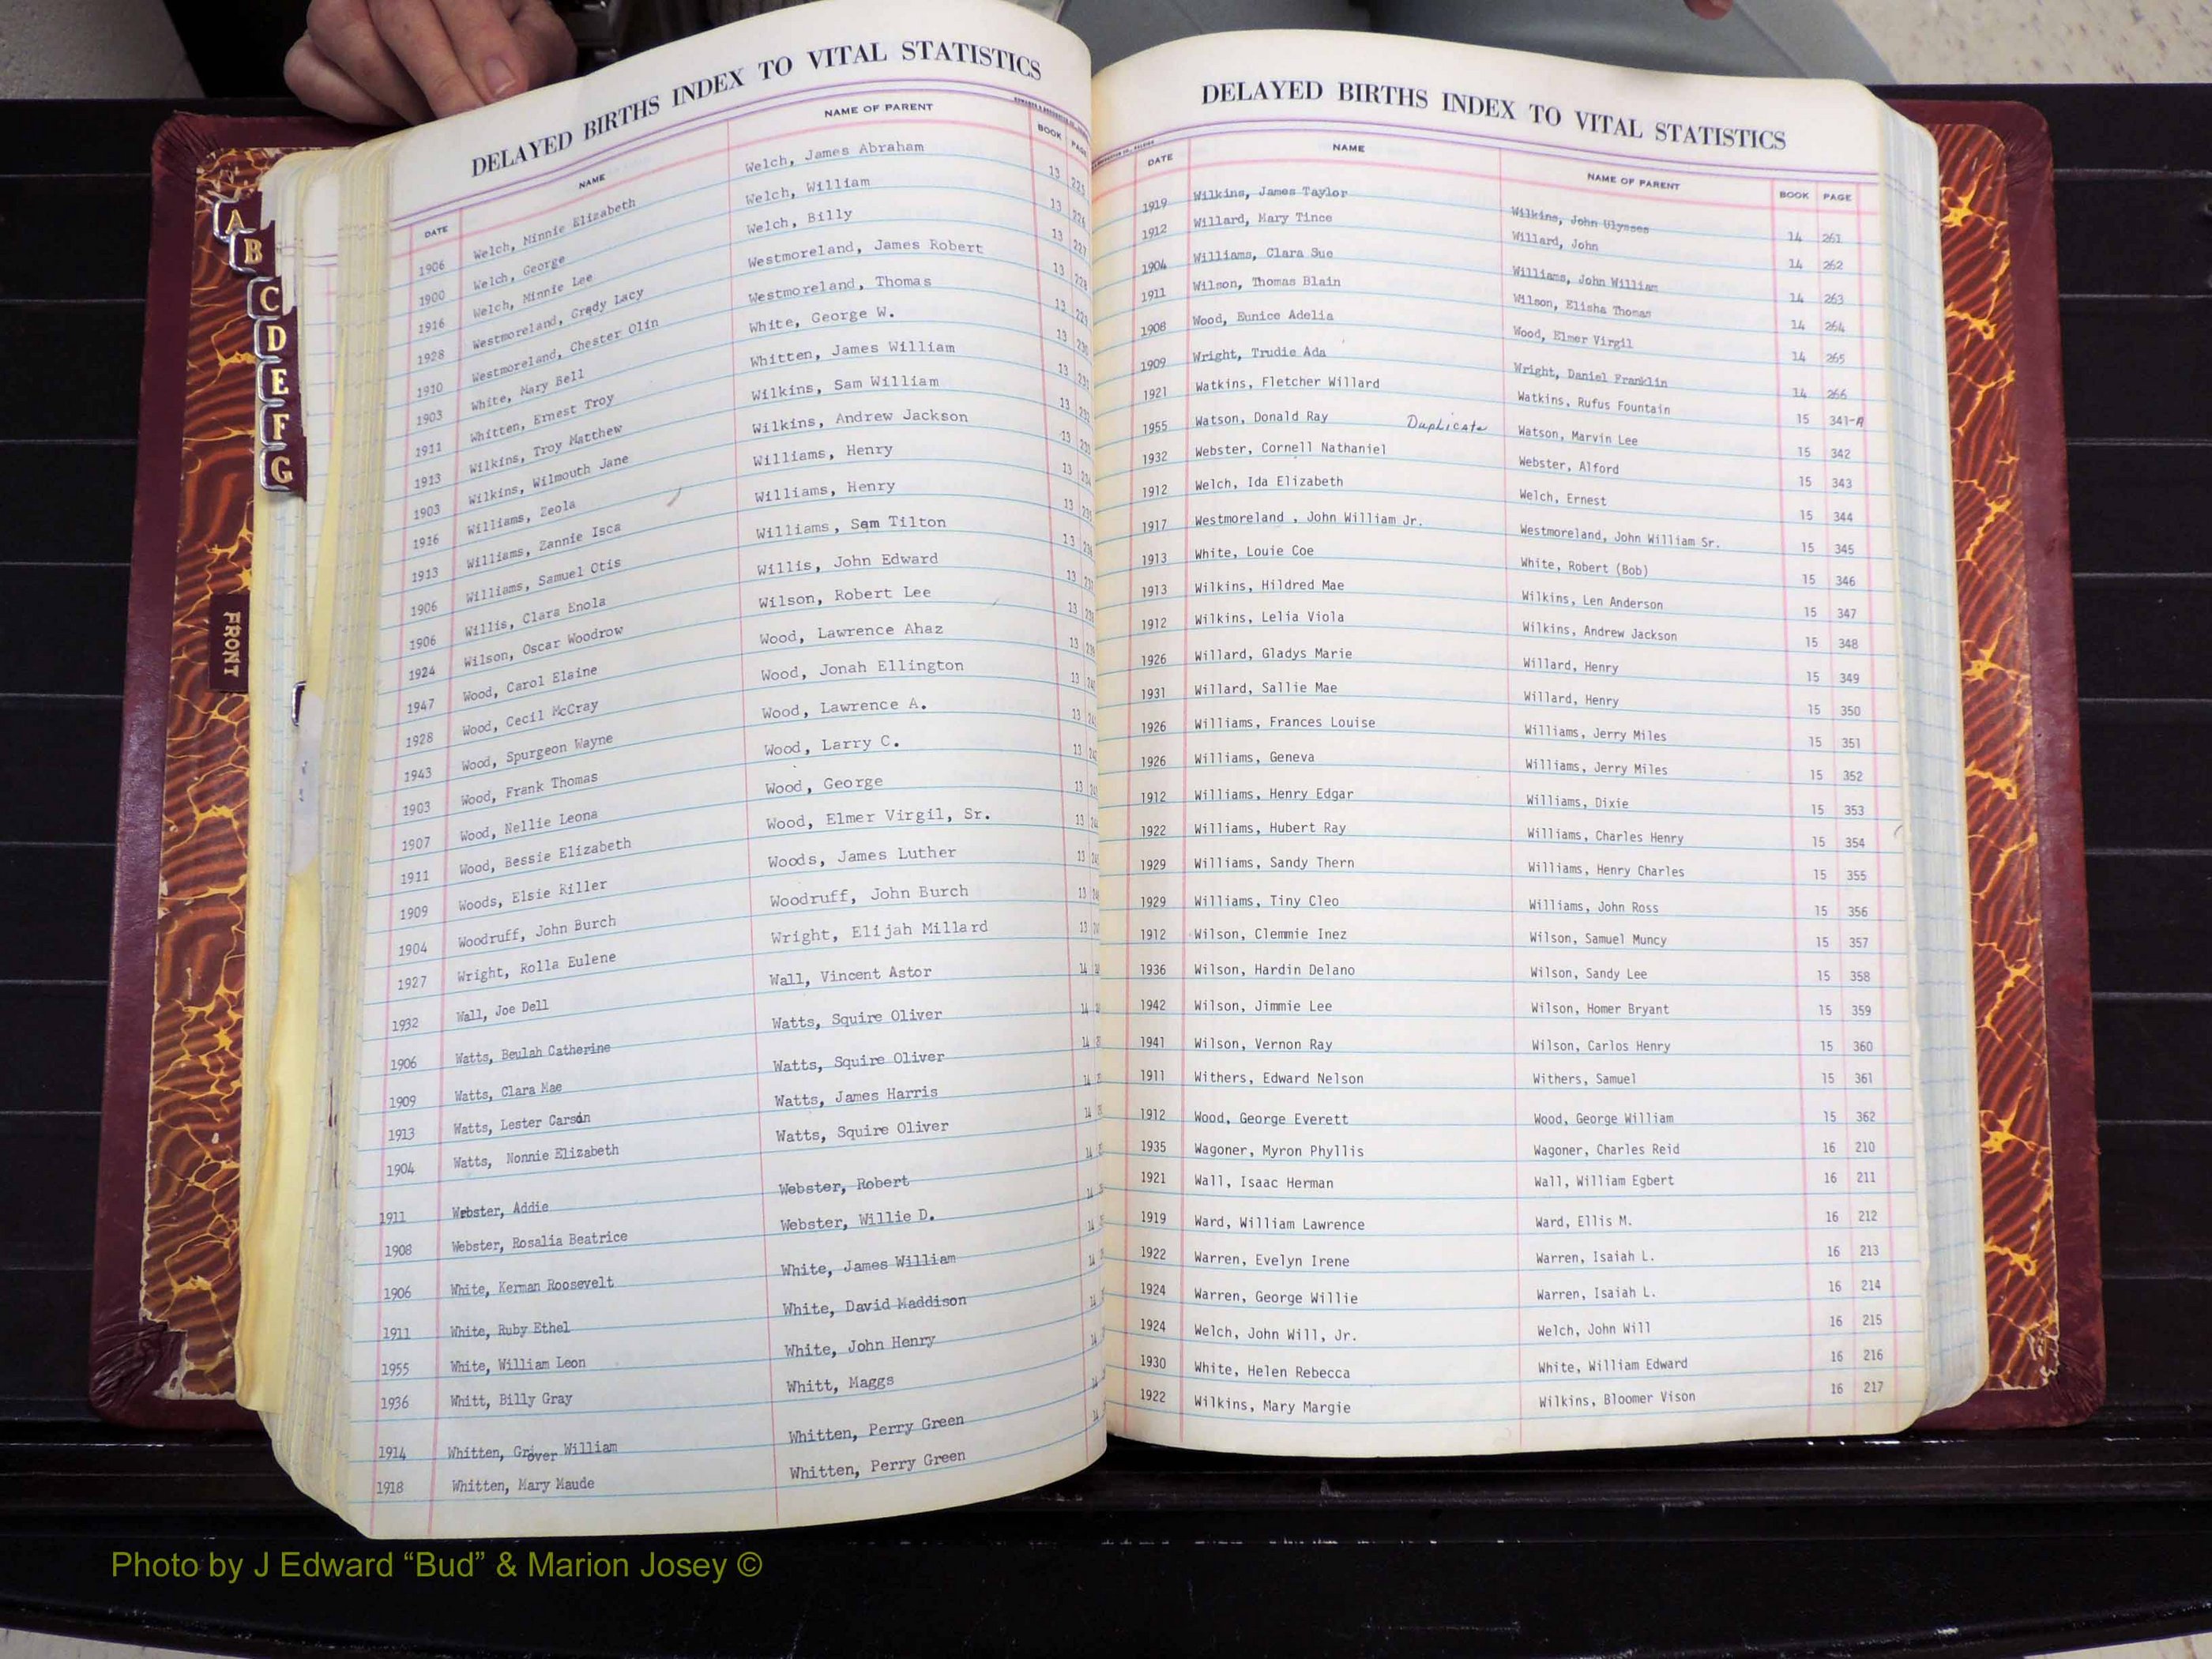 A
B
C
D
E
F
G
FRONT
DELAYED BIRTHS INDEX TO VITAL STATISTICS
DATE NAME NAME OF PARENT BOOK PAGE
1906 Welch, Minnie Elizabeth Welch, James Abraham 13 225
1900 Welch, George Welch, William 13 226
1916 Welch, Minnie Lee Welch, Billy 13 227
1928 Westmoreland, Grady Lacy Westmoreland, James Robert 13 228
1910 Westmoreland, Chester Olin Westmoreland, Thomas 13 229
1903 White, Mary Bell White, George W. 13 230
1911 Whitten, Ernest Troy Whitten, James William 13 231
1913 Wilkins, Troy Matthew Wilkins, Sam William 13 232
1903 Wilkins, Wilmouth Jane Wilkins, Andrew Jackson 13 233
1916 Williams, Zeola Williams, Henry 13 234
1913 Williams, Zannie Isca Williams, Henry 13
1906 Williams, Samuel Otis Williams, Sam Tilton 13
1906 Willis, Clara Enola Willis, John Edward 13
1924 Wilson, Oscar Woodrow Wilson, Robert Lee 13
1947 Wood, Carol Elaine Wood, Lawrence Ahaz 13
1928 Wood, Cecil McCray Wood, Jonah Ellington 13
1943 Wood, Spurgeon Wayne Wood, Lawrence A. 13
1903 Wood, Frank Thomas Wood, Larry C. 13
1907 Wood, Nellie Leona Wood, George 13
1911 Wood, Bessie Elizabeth Wood, Elmer Virgil, Sr. 13
1909 Woods, Elsie Riller Woods, James Luther 13
1904 Woodruff, John Burch Woodruff, John Burch 13
1927 Wright, Rolla Eulene Wright, Elijah Millard 13
1932 Wall, Joe Dell Wall, Vincent Astor 14
1906 Watts, Beulah Catherine Watts, Squire Oliver 14
1909 Watts, Clara Mae Watts, Squire Oliver 14
1913 Watts, Lester Carson Watts, James Harris 14
1904 Watts, Nonnie Elizabeth Watts, Squire Oliver 14
1911 Webster, Addie Webster, Robert 14
1908 Webster, Rosalia Beatrice Webster, Willie D. 14
1906 White, Kerman Roosevelt White, James William 14
1911 White, Ruby Ethel White, David Maddison 14
1955 White, William Leon White, John Henry 14
1936 Whitt, Billy Gray Whitt, Maggs 14
1914 Whitten, Grover William Whitten, Perry Green 14
1918 Whitten, Mary Maude Whitten, Perry Green
DELAYED BIRTHS INDEX TO VITAL STATISTICS
DATE NAME NAME OF PARENT BOOK PAGE
1919 Wilkins, James Taylor Wilkins, John Ulysses 14 261
1912 Willard, Mary Tince Willard, John 14 262
1904 Williams, Clara Sue Williams, John William 14 263
1911 Wilson, Thomas Blain Wilson, Elisha Thomas 14 264
1908 Wood, Eunice Adelia Wood, Elmer Virgil 14 265
1909 Wright, Trudie Ada Wright, Daniel Franklin 14 266
1921 Watkins, Fletcher Willard Watkins, Rufus Fountain 15 341-A
1955 Watson, Donald Ray Duplicate Watson, Marvin Lee 15 342
1932 Webster, Cornell Nathaniel Webster, Alford 15 343
1912 Welch, Ida Elizabeth Welch, Ernest 15 344
1917 Westmoreland , John William Jr. Westmoreland, John William Sr. 15 345
1913 White, Louie Coe White, Robert (Bob) 15 346
1913 Wilkins, Hildred Mae Wilkins, Len Anderson 15 347
1912 Wilkins, Lelia Viola Wilkins, Andrew Jackson 15 348
1926 Willard, Gladys Marie Willard, Henry 15 349
1931 Willard, Sallie Mae Willard, Henry 15 350
1926 Williams, Frances Louise Williams, Jerry Miles 15 351
1926 Williams, Geneva Williams, Jerry Miles 15 352
1912 Williams, Henry Edgar Williams, Dixie 15 353
1922 Williams, Hubert Ray Williams, Charles Henry 15 354
1929 Williams, Sandy Thern Williams, Henry Charles 15 355
1929 Williams, Tiny Cleo Williams, John Ross 15 356
1912 Wilson, Clemmie Inez Wilson, Samuel Muncy 15 357
1936 Wilson, Hardin Delano Wilson, Sandy Lee 15 358
1942 Wilson, Jimmie Lee Wilson, Homer Bryant 15 359
1941 Wilson, Vernon Ray Wilson, Carlos Henry 15 360
1911 Withers, Edward Nelson Withers, Samuel 15 361
1912 Wood, George Everett Wood, George William 15 362
1935 Wagoner, Myron Phyllis Wagoner, Charles Reid 16 210
1921 Wall, Isaac Herman Wall, William Egbert 16 211
1919 Ward, William Lawrence Ward, Ellis M. 16 212
1922 Warren, Evelyn Irene Warren, Isaiah L. 16 213
1924 Warren, George Willie Warren, Isaiah L. 16 214
1924 Welch, John Will, Jr. Welch, John Will 16 215
1930 White, Helen Rebecca White, William Edward 16 216
1922 Wilkins, Mary Margie Wilkins, Bloomer Vison 16 217
Photo by J Edward “Bud” & Marion Josey ©